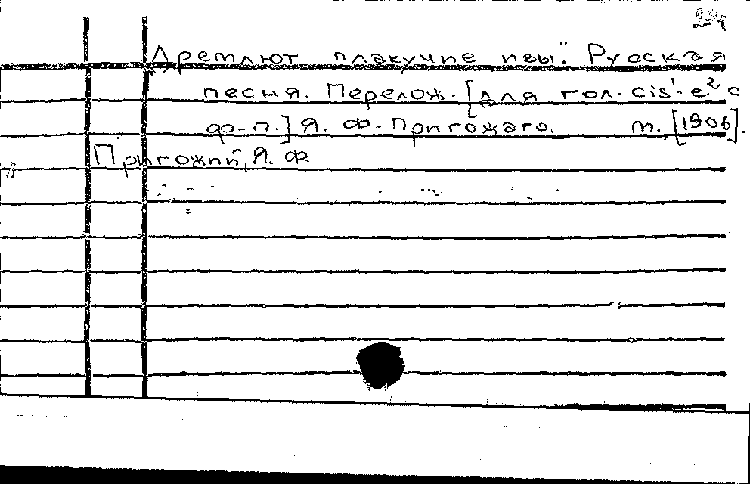 Дремлют плакучие ивы". Русская
песня. Перелож. [для гол. cis¹-e² с
ф-п.] Я. Ф. Пригожаго. м. [1906].
Пригожий, Я. Ф.